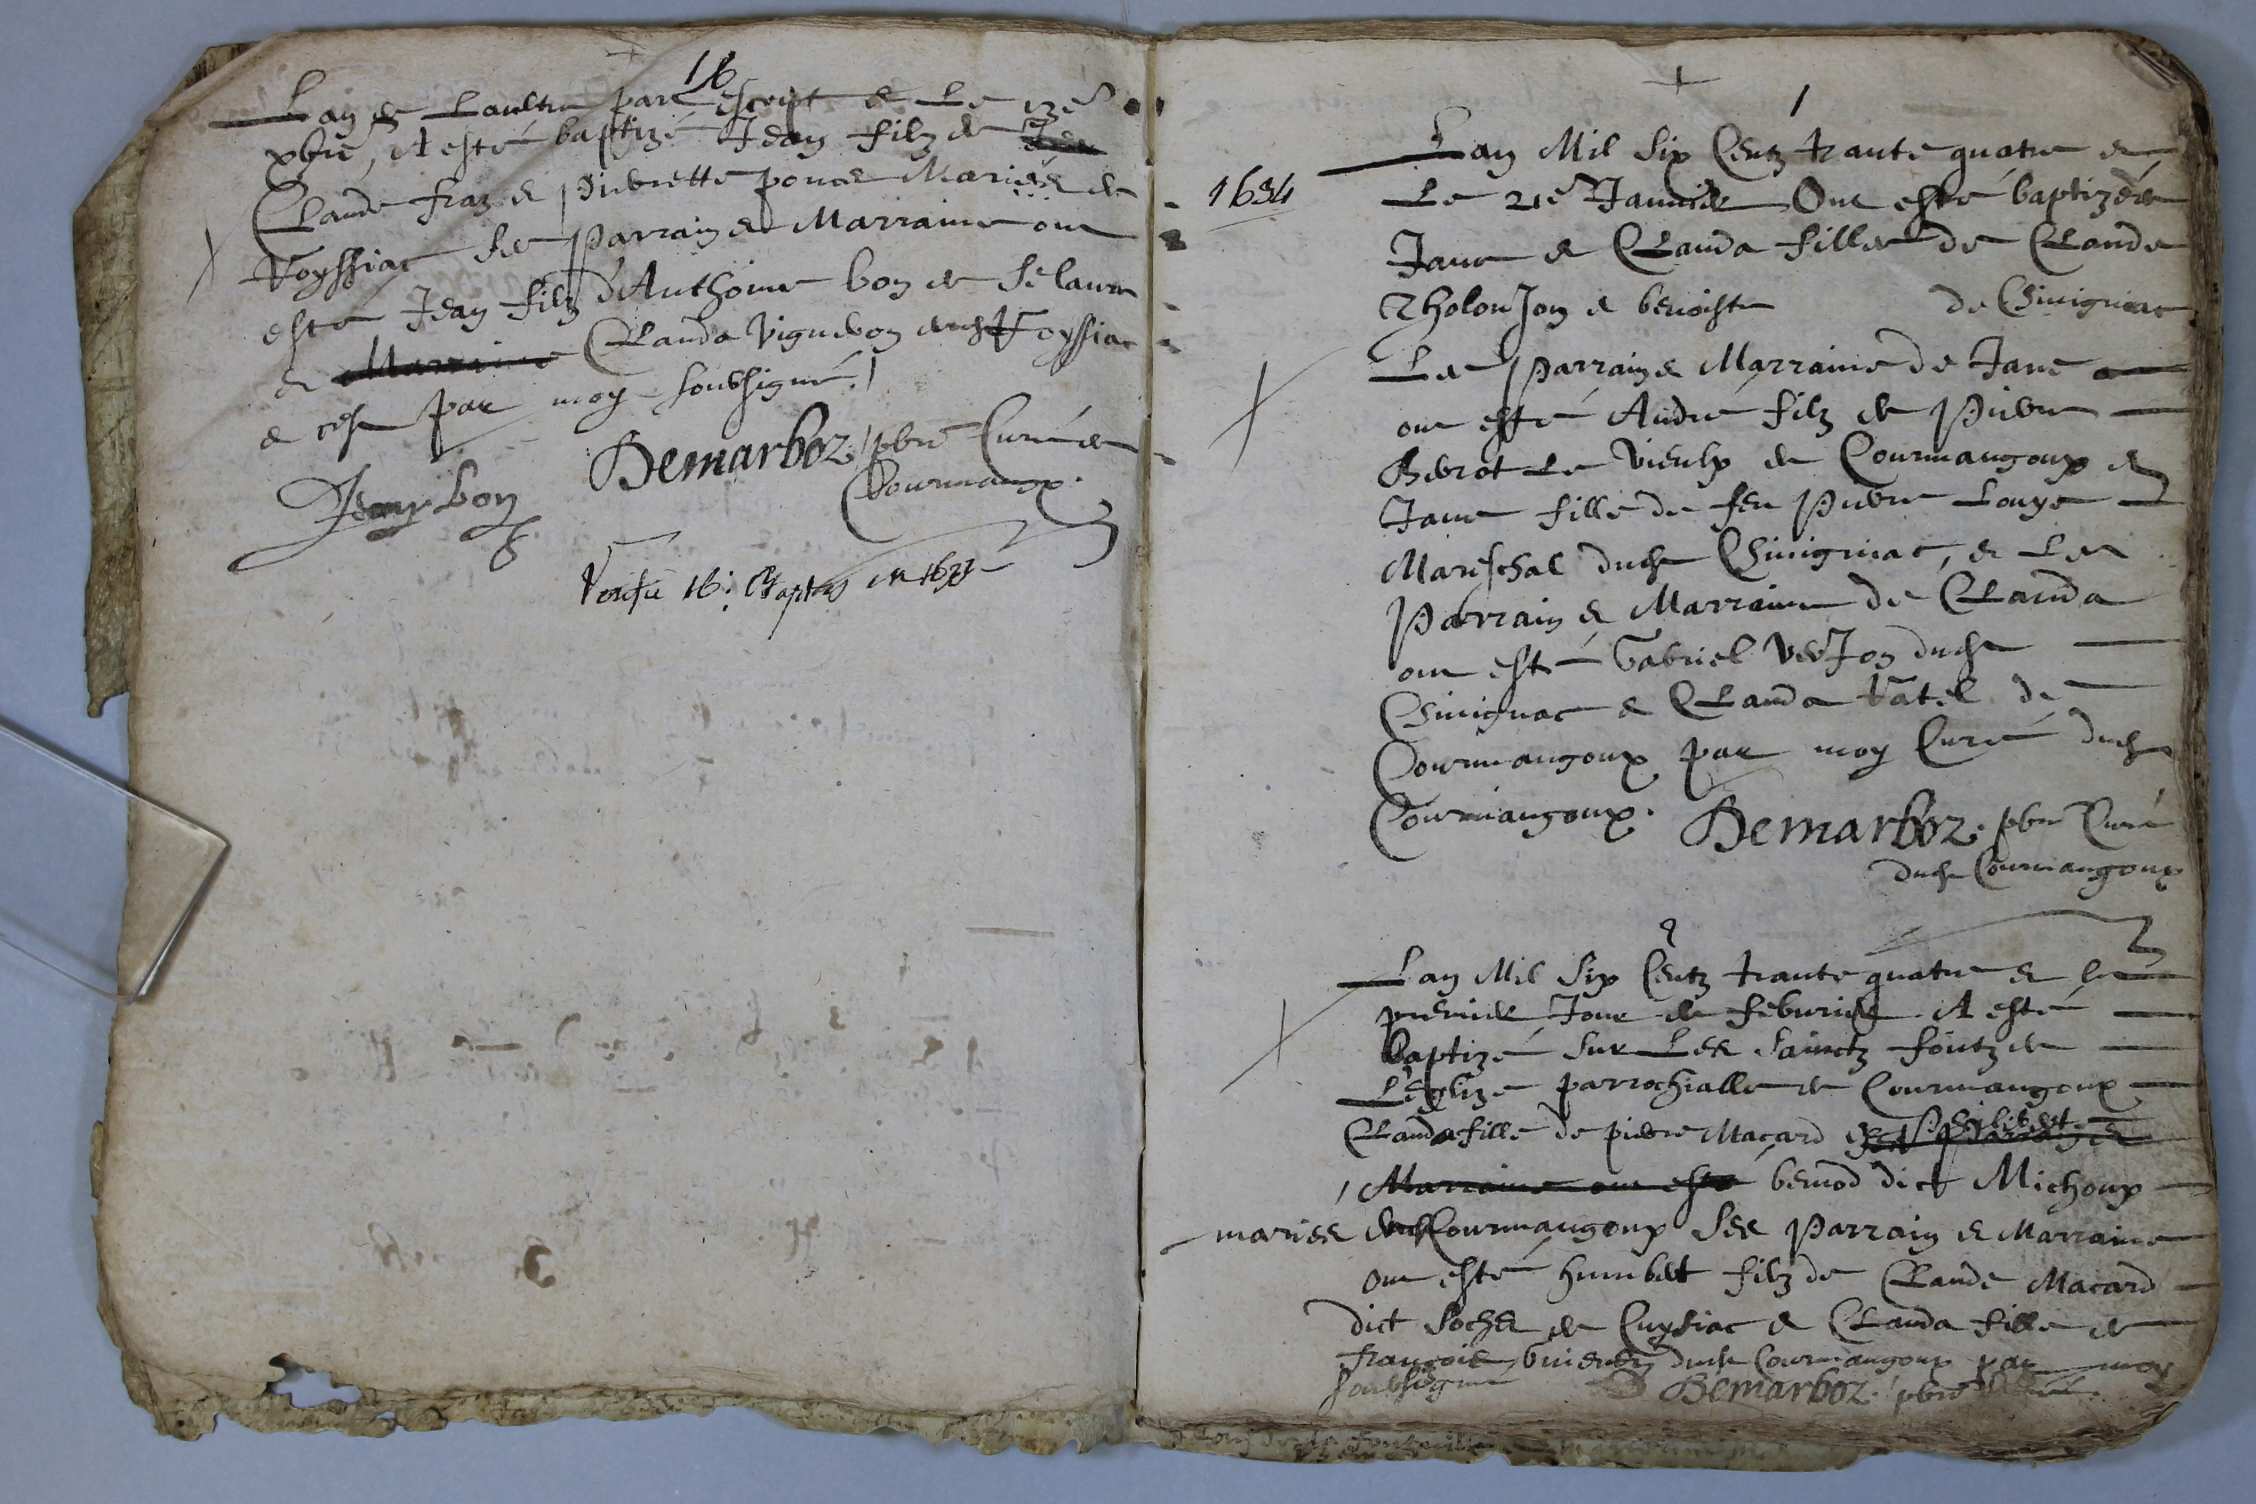 16
Lan & Laultre part escript & Le 13e
xbre, A esté baptizé Jean filz de
Claude fraz & pierrette ponce Mariés de
Voyssiac Ses Parrain & Marraine ont
esté Jean filz d'Anthoine bon de St laurn
& Marraine Clauda Vigneron dudt Voyssiac
& cest par moy soubsigné.
Demarboz pbre Curé de
Courmangx.
Jean bon
Verifié 16. Baptes en 1633
1
1634
Lan Mil Six Centz trante quatre &
Le 21e Janvier Ont esté baptizées
Jane & Clauda filles de Claude
Tholonjon & benoiste de Chinignac
Les Parrain & Marraine de Jane
ont esté André filz de Pierre
Gevrot Le Vieulx de Courmangoux &
Jane fille de feu Pierre Louys
Mareschal dudt Chinignac, & Les
Parrain & Marraine de Clauda
ont esté Gabriel VerJon dudt
Chinignac & Clauda Vatel de
Courmangoux par moy Curé dudt
Courmangoux. Demarboz. pbre Curé
dudt Courmangoux
2
Lan Mil Six Centz trante quatre & le
premier Jour de feburier A esté
Baptizé sur Les Sainctz fontz de
L'Eglize parrochialle de Courmangoux
Clauda fille de pierre Macard & philiberte
Marraine ont esté bernod dict Michoux
mariés dudt Courmangoux Ses Parrain & Marraine
ont esté humbert filz de Claude Macard
dict Sochet de Cuysiac & Clauda fille de
françois dudt Courmangoux par moy
soubsigné Demarboz. pbre Curé.